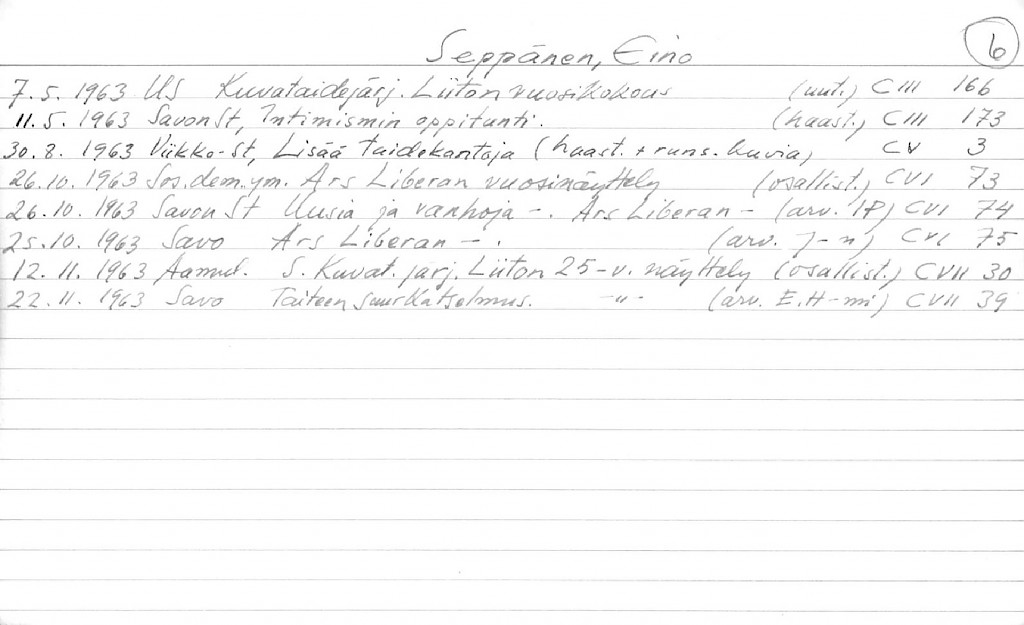 6
Seppänen, Eino
7.5. 1963 US Kuvataidejärj. Liiton vuosikokous (uut.) CIII 166
11.5. 1963 Savon St, Intimismin oppitunti. (haast.) CIII 173
30.8. 1963 Viikko-St, Lisää taidekantoja (haast. + runs. kuvia) CV 3
26.10. 1963 Sos.dem.ym. Ars Liberan vuosinäyttely (osallist.) CVI 73
26.10. 1963 Savon St Uusia ja vanhoja -. Ars Liberan - (arv. IP) CVI 74
25.10. 1963 Savo Ars Liberan - . (arv. J-n) CVI 75
12.11. 1963 Aamul. S. Kuvat. järj. Liiton 25-v. näyttely (osallist.) CVII 30
22.11. 1963 Savo Taiteen suurkatselmus. -"- (arv. E.H-mi) CVII 39